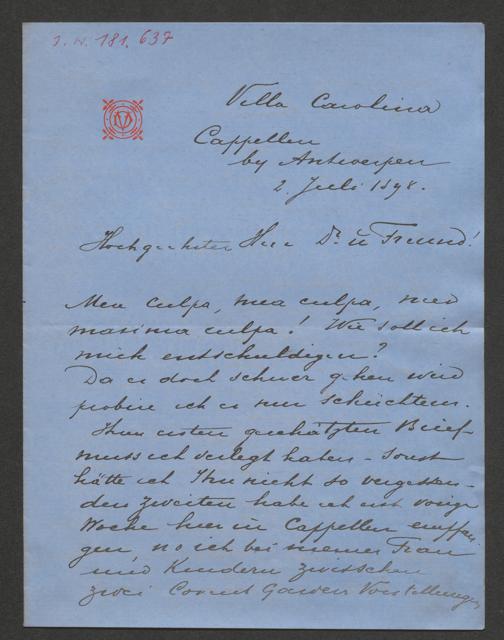 I. N. 181.637
Villa Carolina
Cappellen
by Antwerpen
2. Juli 1898.
Hochgeehrter Herr Dr. u Freund!
Mea culpa, mea culpa, mea
maxima culpa! Wie soll ich
mich entschuldigen?
Da es doch schwer gehen wird
probire ich es nur schüchtern.
Ihren ersten geschätzten Brief
muss ich verlegt haben – sonst
hätte ich Ihn nicht so vergessen –
den zweiten habe ich erst vorige
Woche hier in Cappellen empfan
gen, wo ich bei meiner Frau
und Kindern zwischen
zwei Covent Garden Vorstellungen